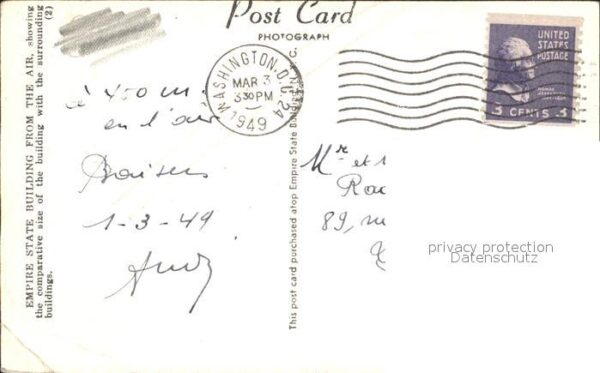 Post Card
PHOTOGRAPH
EMPIRE STATE BUILDING FROM THE AIR, showing
the comparative size of the building with the surrounding
buildings. (2)
WASHINGTON, D.C. 24
MAR 3
3 30 PM
1949
UNITED
STATES
POSTAGE
3 CENTS 3
à 450 m
en l'air
Baisers
1-3-49
This post card purchased atop Empire State
Mr et
89,
privacy protection
Datenschutz